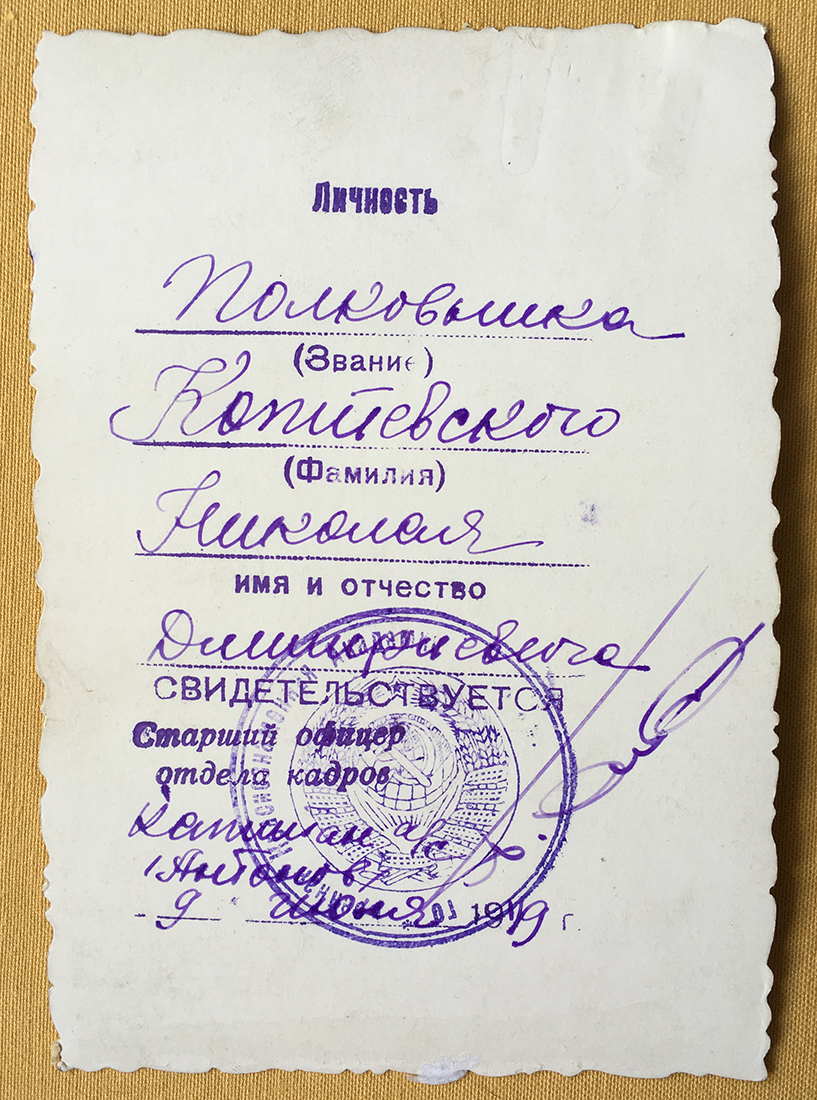 Личность
Полковника
(Звание)
Коптевского
(Фамилия)
Николая
имя и отчество
Дмитриевича
СВИДЕТЕЛЬСТВУЕТСЯ
Старший офицер
отдела кадров
Капитан а/с
(Антонов)
9 июня 1949 г